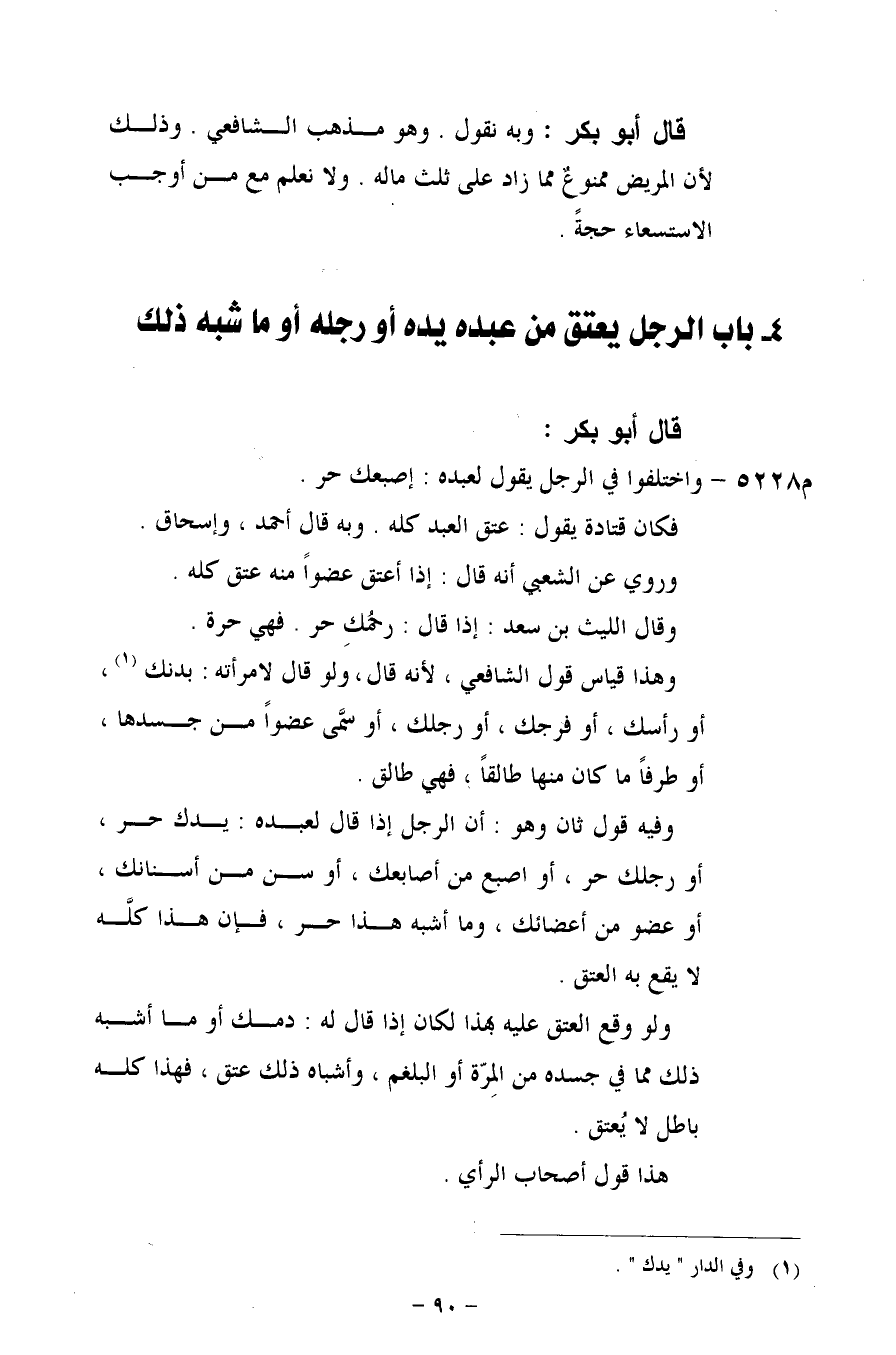 قال أبو بكر : وبه نقول . وهو مـــذهب الـــشافعي . وذلـــك
لأن المريض ممنوعٌ مما زاد على ثلث ماله . ولا نعلم مع مـــن أوجـــب
الاستسعاء حجةً .
٤ـ باب الرجل يعتق من عبده يده أو رجله أو ما شبه ذلك
قال أبو بكر :
م٥٢٢٨ – واختلفوا في الرجل يقول لعبده : إصبعك حر .
فكان قتادة يقول : عتق العبد كله . وبه قال أحمد ، وإسحاق .
وروي عن الشعبي أنه قال : إذا أعتق عضواً منه عتق كله .
وقال الليث بن سعد : إذا قال : رحمُكِ حر . فهي حرة .
وهذا قياس قول الشافعي ، لأنه قال، ولو قال لامرأته : بدنك (١) ،
أو رأسك ، أو فرجك ، أو رجلك ، أو سمَّى عضواً مـــن جـــسدها ،
أو طرفاً ما كان منها طالقاً ، فهي طالق .
وفيه قول ثان وهو : أن الرجل إذا قال لعبـــده : يـــدك حـــر ،
أو رجلك حر ، أو اصبع من أصابعك ، أو ســـن مـــن أســـنانك ،
أو عضو من أعضائك ، وما أشبه هـــذا حـــر ، فـــإن هـــذا كلَّـــه
لا يقع به العتق .
ولو وقع العتق عليه بهذا لكان إذا قال له : دمـــك أو مـــا أشـــبه
ذلك مما في جسده من المِرّة أو البلغم ، وأشباه ذلك عتق ، فهذا كلـــه
باطل لا يُعتق .
هذا قول أصحاب الرأي .
(١) وفي الدار " يدك " .
– ٩٠ –